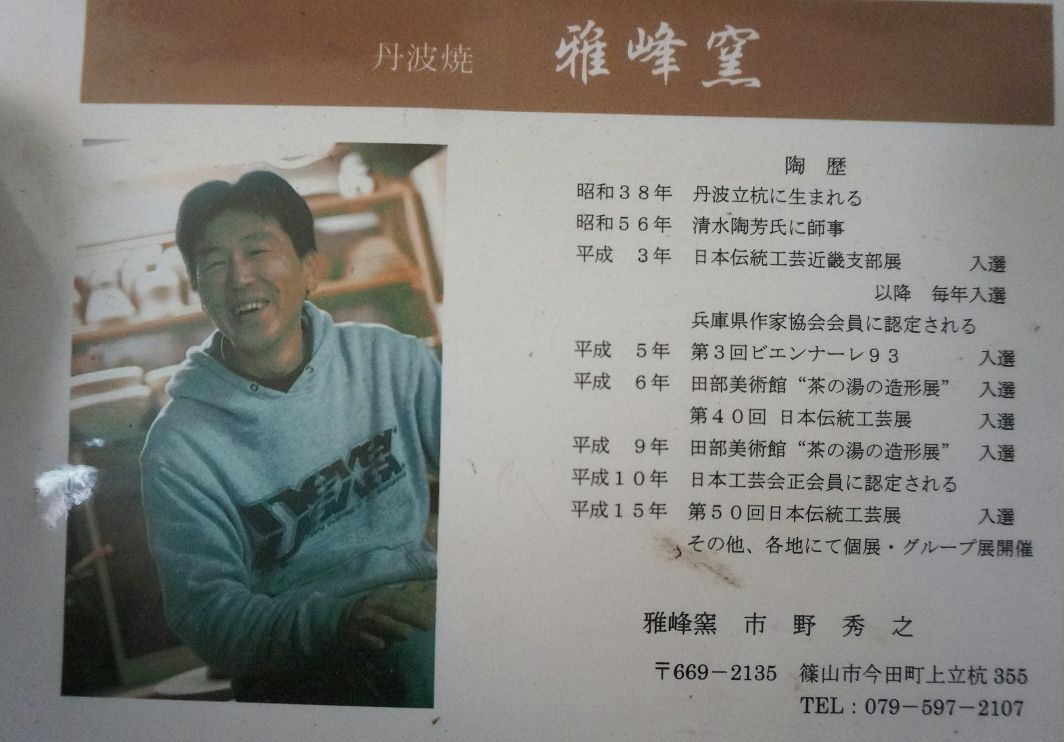 丹波焼 雅峰窯
陶 歴
昭和38年 丹波立杭に生まれる
昭和56年 清水陶芳氏に師事
平成 3年 日本伝統工芸近畿支部展 入選
以降 毎年入選
兵庫県作家協会会員に認定される
平成 5年 第3回ビエンナーレ93 入選
平成 6年 田部美術館“茶の湯の造形展” 入選
第40回 日本伝統工芸展 入選
平成 9年 田部美術館“茶の湯の造形展” 入選
平成10年 日本工芸会正会員に認定される
平成15年 第50回日本伝統工芸展 入選
その他、各地にて個展・グループ展開催
雅峰窯 市 野 秀 之
〒669-2135 篠山市今田町上立杭 355
TEL:079-597-2107